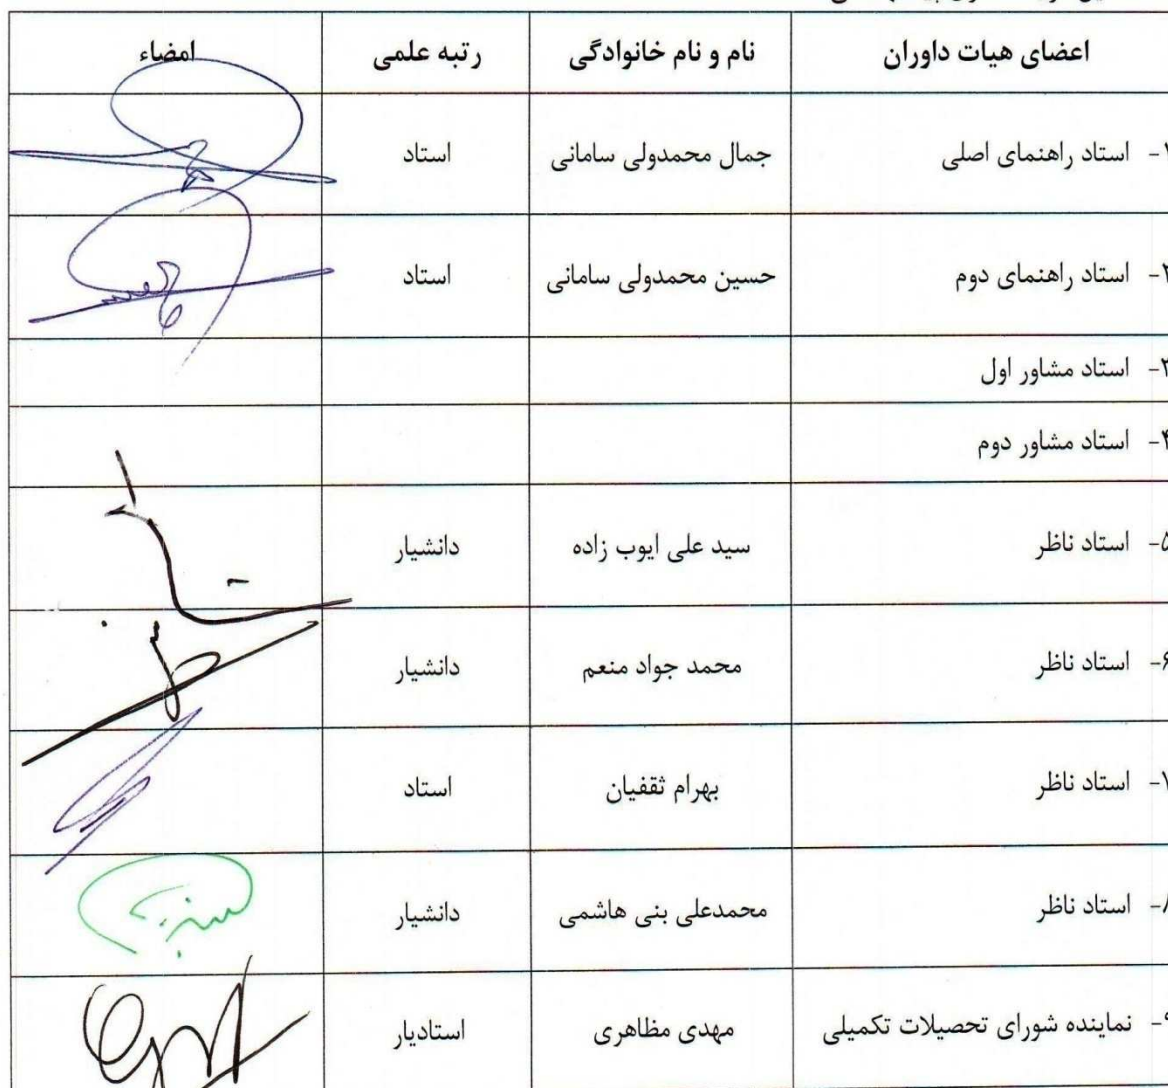 اعضای هیات داوران نام و نام خانوادگی رتبه علمی امضاء
۱- استاد راهنمای اصلی جمال محمدولی سامانی استاد
۲- استاد راهنمای دوم حسین محمدولی سامانی استاد
۳- استاد مشاور اول
۴- استاد مشاور دوم
۵- استاد ناظر سید علی ایوب زاده دانشیار
۶- استاد ناظر محمد جواد منعم دانشیار
۷- استاد ناظر بهرام ثقفیان استاد
۸- استاد ناظر محمدعلی بنی هاشمی دانشیار
۹- نماینده شورای تحصیلات تکمیلی مهدی مظاهری استادیار